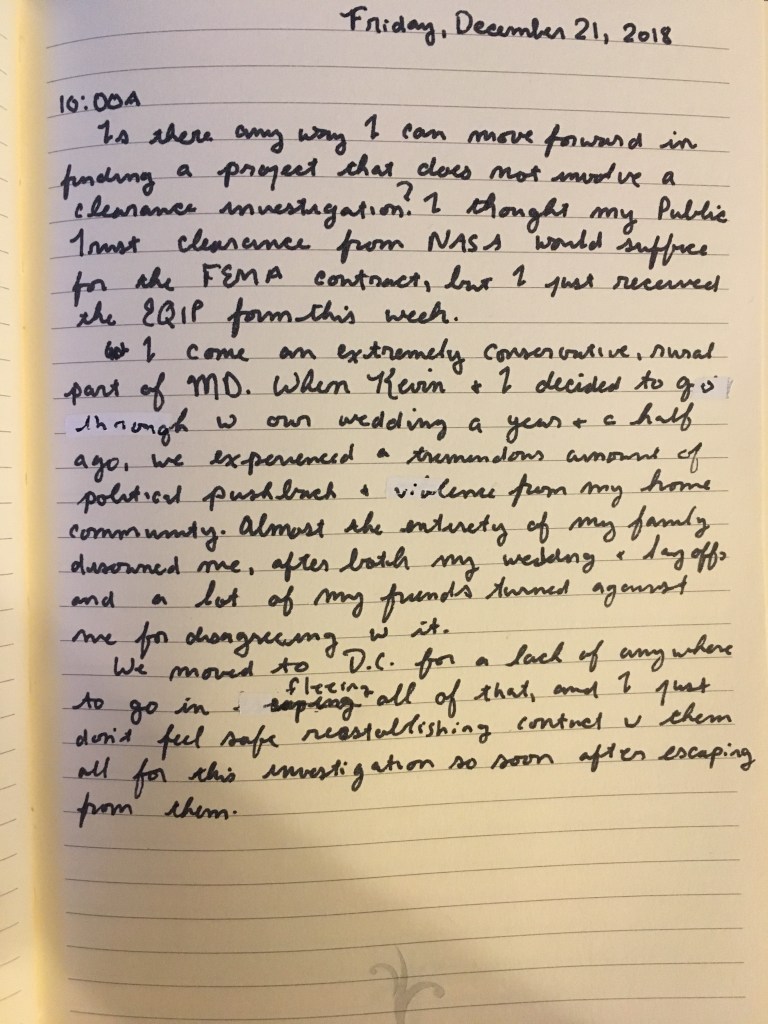 Friday, December 21, 2018
10:00A
Is there any way I can move forward in
finding a project that does not involve a
clearance investigation? I thought my Public
Trust clearance from NASA would suffice
for the FEMA contract, but I just received
the EQIP form this week.
I come an extremely conservative, rural
part of MD. When Kevin + I decided to go
through w our wedding a year + a half
ago, we experienced a tremendous amount of
political pushback + violence from my home
community. Almost the entirety of my family
disowned me, after both my wedding + layoffs
and a lot of my friends turned against
me for disagreeing w it.
We moved to D.C. for a lack of anywhere
to go in fleeing all of that, and I just
don't feel safe reestablishing contact w them
all for this investigation so soon after escaping
from them.